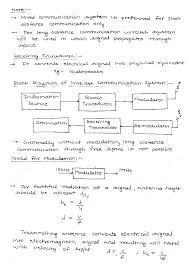 Note:-
→ Wired communication system is preferred for short
distance communication only
→ For long distance communication wireless system
will be used in which signal propagates through
space
Receiving Transducer:-
→ It converts electrical signal into physical equivalent
eg:- loudspeaker
Block Diagram of Wireless Communication System:-
Information
Source
Source
Transducer
Modulator
Destination
Receiving
Transducer
Demodulator
→ Generally without modulation, long distance
communication through free space is not possible
Need for Modulation:-
Modulator
→ For faithful modulation of a signal, antenna height
should be atleast λ/4
Transmitting antenna converts electrical signal
into electromagnetic signal and resulting will travel
with velocity of light